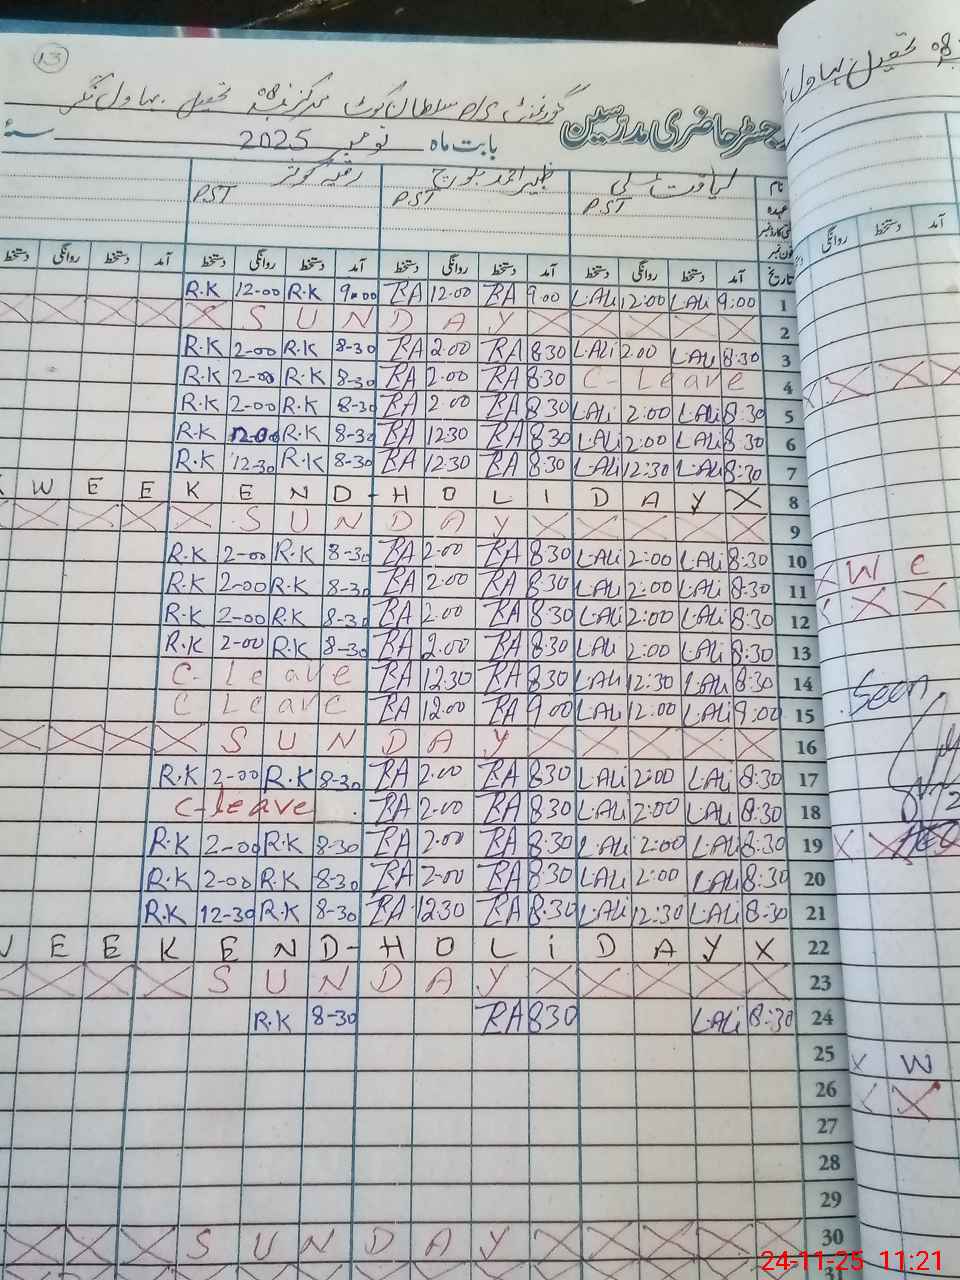 13
گورنمنٹ P/S سلطان کوٹ مرکز نمبر 08 تحصیل بہاول نگر
رجسٹر حاضری مدرسین
بابت ماہ نومبر 2025 سنہ
نام لیاقت علی ظہیر احمد بلوچ رقیہ کوثر
عہدہ PST PST PST
تاریخ آمد دستخط روانگی دستخط آمد دستخط روانگی دستخط آمد دستخط روانگی دستخط آمد دستخط روانگی دستخط
R.K 12-00 R.K 9-00 RA 12.00 RA 9.00 L.ALi 12:00 L.ALi 9:00 1
X X X X X S U N D A Y X X X X X 2
R.K 2-00 R.K 8-30 RA 2.00 RA 8.30 L.ALi 2.00 L.ALi 8:30 3
R.K 2-00 R.K 8-30 RA 2.00 RA 8.30 C- Leave 4
R.K 2-00 R.K 8-30 RA 2.00 RA 8.30 L.ALi 2:00 L.ALi 8:30 5
R.K 12-00 R.K 8-30 RA 12.30 RA 8.30 L.ALi 2:00 L.ALi 8:30 6
R.K 12-30 R.K 8-30 RA 12.30 RA 8.30 L.ALi 12:30 L.ALi 8:30 7
W E E K E N D - H O L I D A Y X 8
X X X X X S U N D A Y X X X X X 9
R.K 2-00 R.K 8-30 RA 2.00 RA 8.30 L.ALi 2:00 L.ALi 8:30 10
R.K 2-00 R.K 8-30 RA 2.00 RA 8.30 L.ALi 2:00 L.ALi 8:30 11
R.K 2-00 R.K 8-30 RA 2.00 RA 8.30 L.ALi 2:00 L.ALi 8:30 12
R.K 2-00 R.K 8-30 RA 2.00 RA 8.30 L.ALi 2:00 L.ALi 8:30 13
C- Leave RA 12.30 RA 8.30 L.ALi 12:30 L.ALi 8:30 14
C Leave RA 12.00 RA 9.00 L.ALi 12:00 L.ALi 9:00 15
X X X X S U N D A Y X X X X X 16
R.K 2-00 R.K 8-30 RA 2.00 RA 8.30 L.ALi 2:00 L.ALi 8:30 17
C-leave RA 2.00 RA 8.30 L.ALi 2:00 L.ALi 8:30 18
R.K 2-00 R.K 8-30 RA 2.00 RA 8.30 L.ALi 2:00 L.ALi 8:30 19
R.K 2-00 R.K 8-30 RA 2-00 RA 8.30 L.ALi 2:00 L.ALi 8:30 20
R.K 12-30 R.K 8-30 RA 12.30 RA 8.30 L.ALi 12:30 L.ALi 8:30 21
W E E K E N D - H O L i D A Y X 22
X X X X S U N D A Y X X X X X 23
R.K 8-30 RA 8.30 L.ALi 8:30 24
25
26
27
28
29
X X X S U N D A Y X X X X X 30
31
تحصیل بہاول
آمد دستخط روانگی
X W e
Seen
X W
24-11-25 11:21